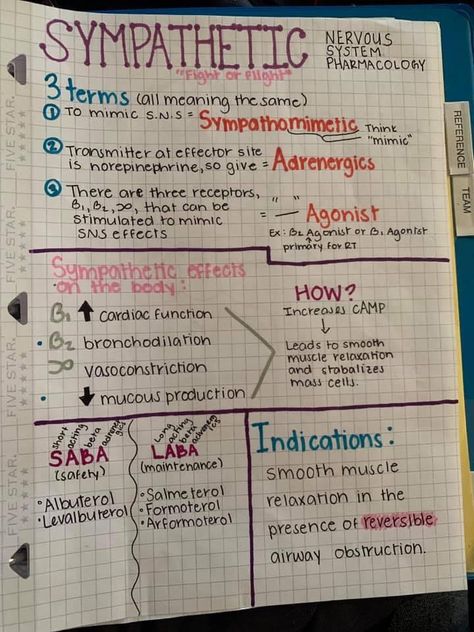 SYMPATHETIC
NERVOUS
SYSTEM
PHARMACOLOGY
"Fight or Flight"
3 terms (all meaning the same)
① To mimic S.N.S = Sympathomimetic Think
"mimic"
② Transmitter at effector site
is norepinephrine, so give = Adrenergics
③ There are three receptors,
β1, β2, ∝, that can be
stimulated to mimic
SNS effects
= " — " Agonist
Ex: β2 Agonist or β1 Agonist
primary for RT
Sympathetic effects
on the body:
β1 ↑ cardiac function
• β2 bronchodilation
∝ vasoconstriction
• ↓ mucous production
HOW?
Increases cAMP
↓
Leads to smooth
muscle relaxation
and stabalizes
mass cells.
short
acting
beta
SABA
(safety)
• Albuterol
• Levalbuterol
Long
acting
beta
LABA
(maintenance)
• Salmeterol
• Formoterol
• Arformoterol
Indications:
smooth muscle
relaxation in the
presence of reversible
airway obstruction.
FIVE STAR.
FIVE STAR.
FIVE STAR.
FIVE STAR.
REFERENCE
TEAM